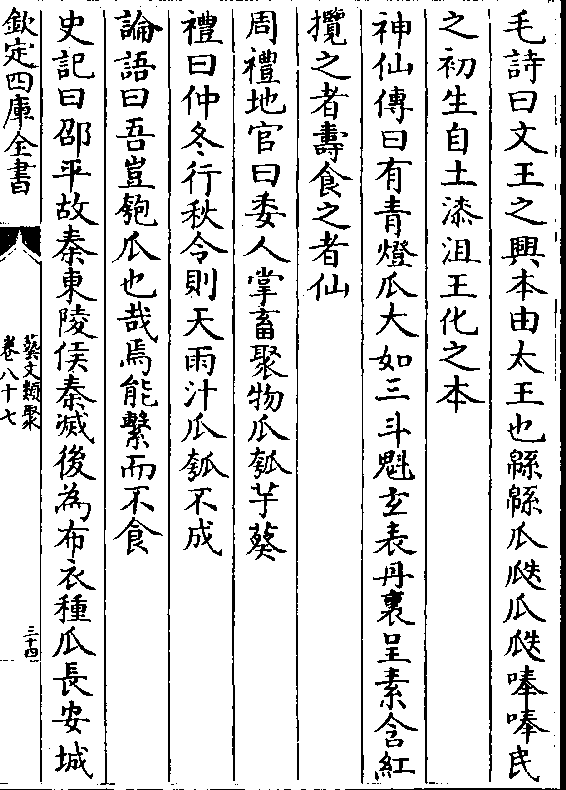 毛詩曰文王之興本由太王也緜緜瓜瓞瓜瓞唪唪民
之初生自土漆沮王化之本
神仙傳曰有青燈瓜大如三斗魁玄表丹裏呈素含紅
攬之者壽食之者仙
周禮地官曰委人掌畜聚物瓜瓠芋葵
禮曰仲冬行秋令則天雨汁瓜瓠不成
論語曰吾豈匏瓜也哉焉能繫而不食
史記曰邵平故秦東陵侯秦滅後為布衣種瓜長安城
欽定四庫全書
藝文類聚
卷八十七
三十四